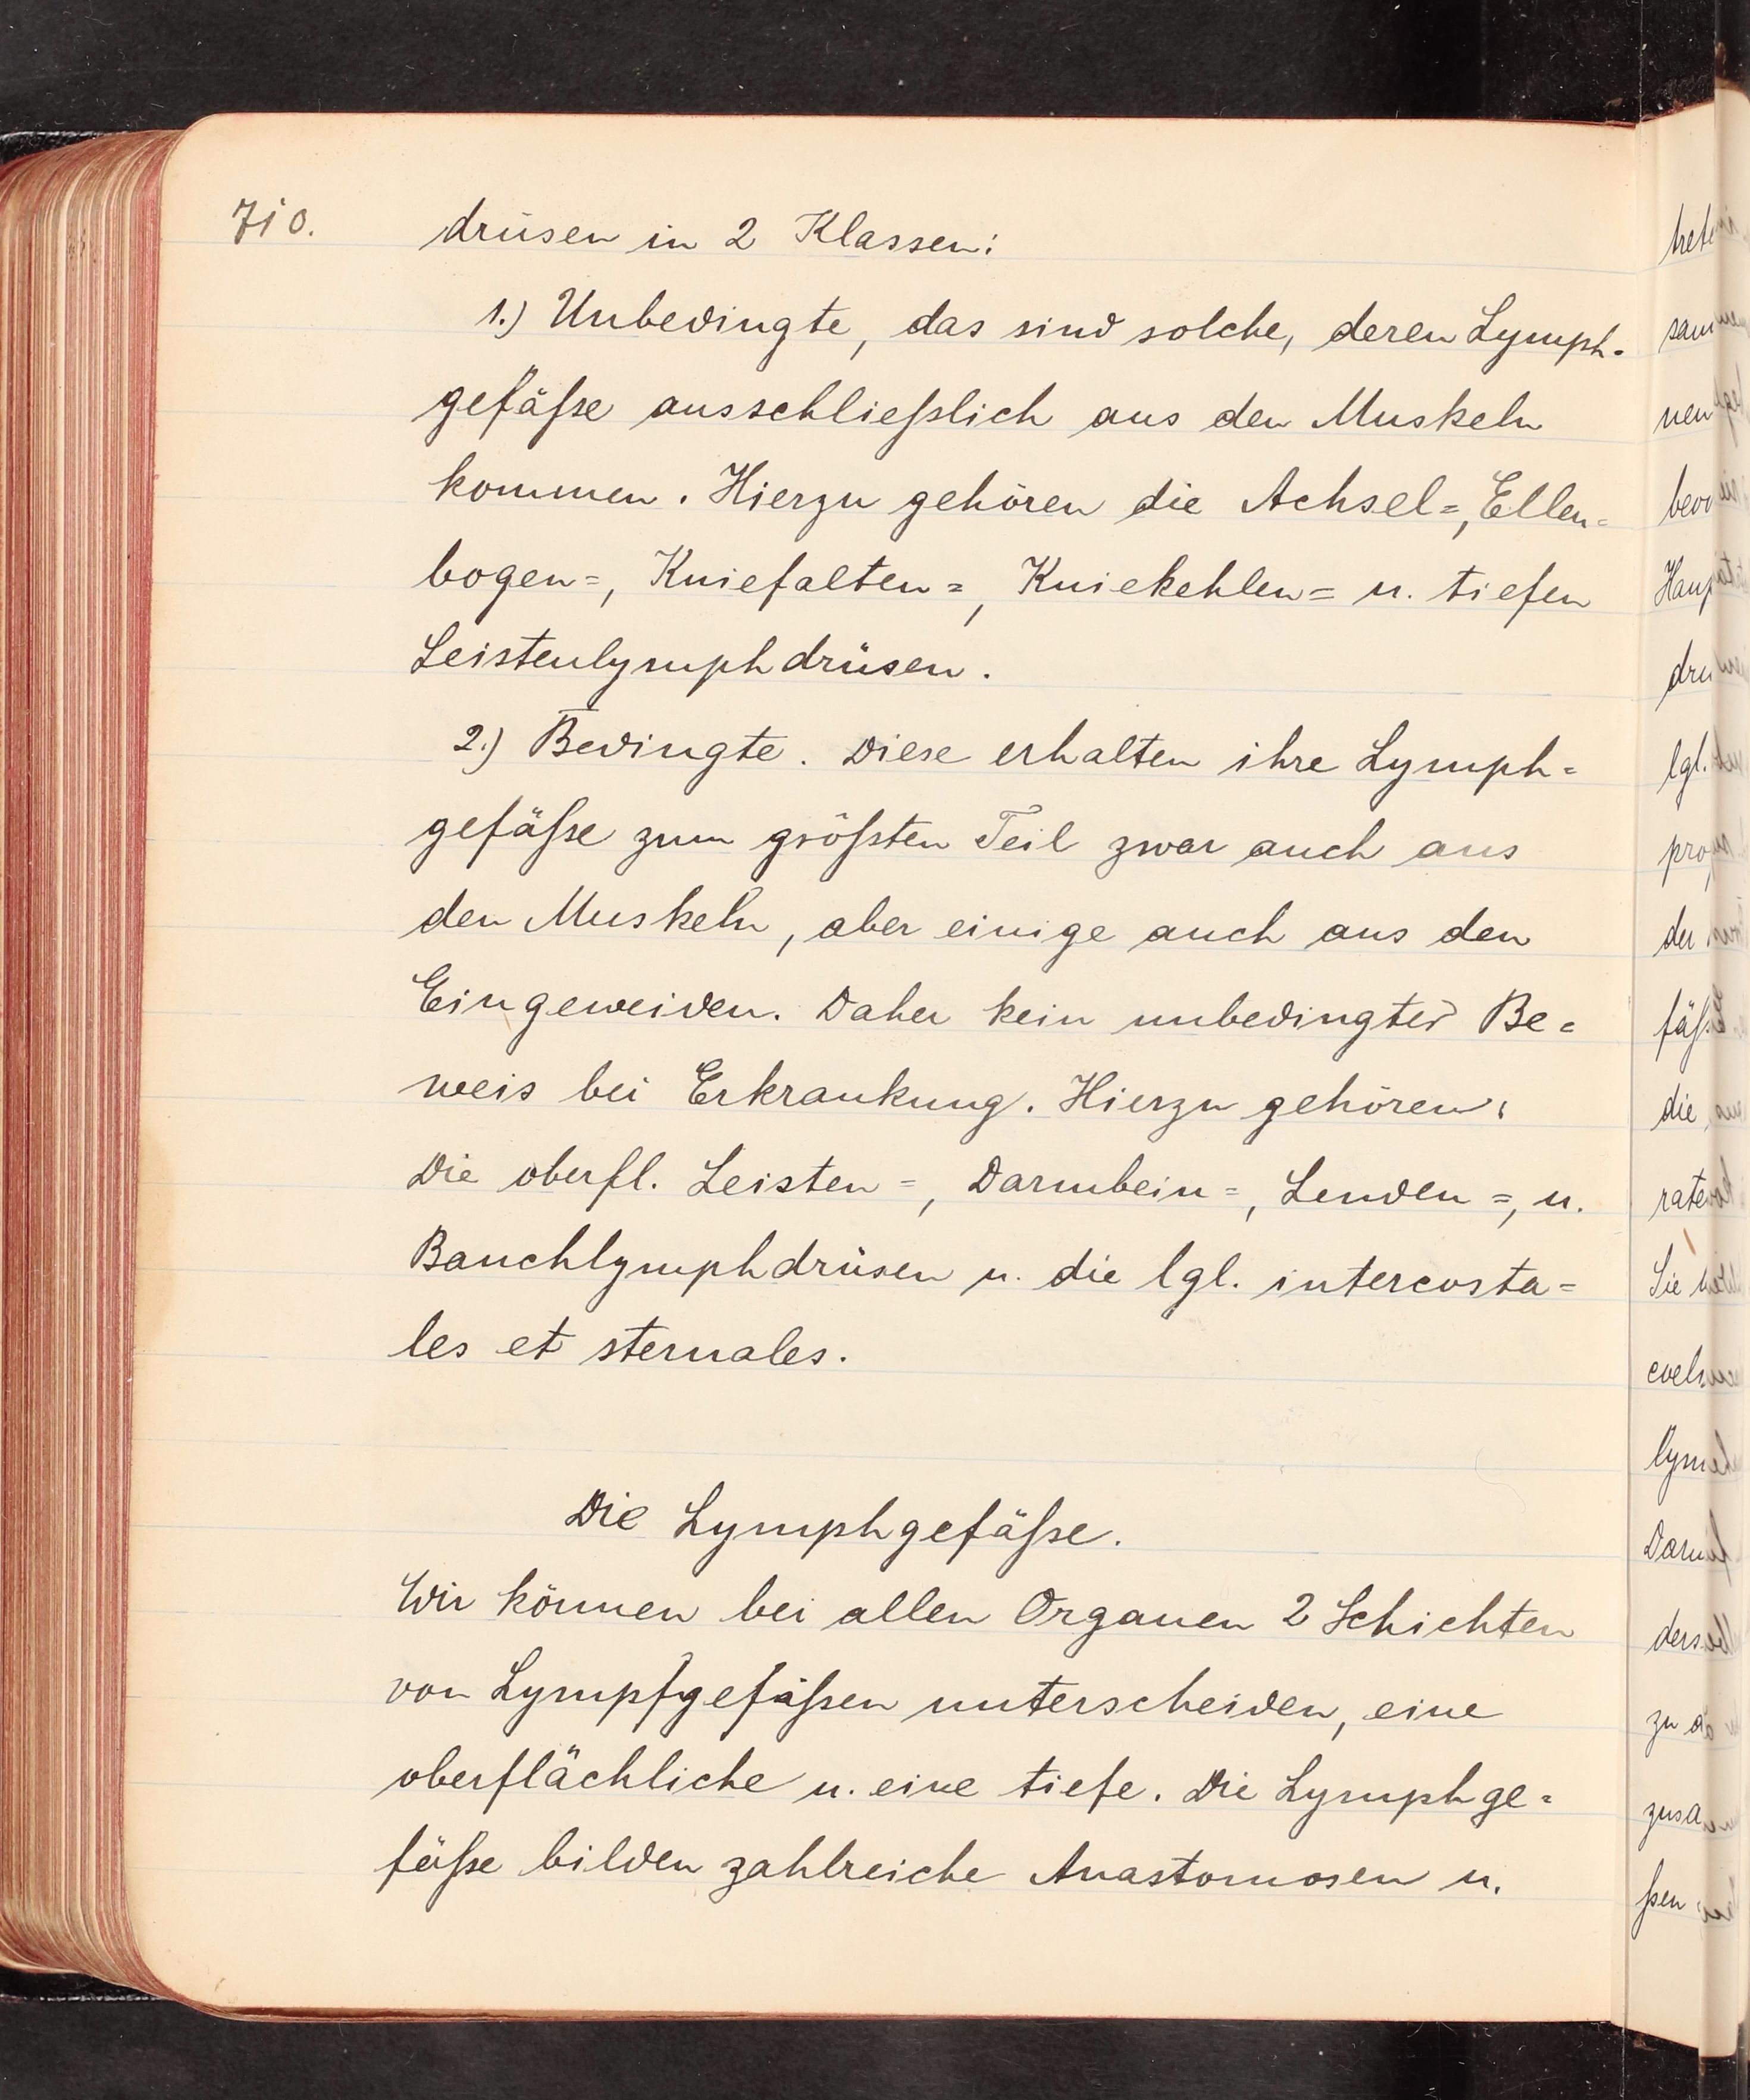 710.
drüsen in 2 Klassen:
1.) Unbedingte, das sind solche, deren Lymph-
gefäße ausschließlich aus den Muskeln
kommen. Hierzu gehören die Achsel=, Ellen=
bogen=, Kniefalten=, Kniekehlen= u. tiefen
Leistenlymphdrüsen.
2.) Bedingte. Diese erhalten ihre Lymph=
gefäße zum größten Teil zwar auch aus
den Muskeln, aber einige auch aus den
Eingeweiden. Daher kein unbedingter Be=
weis bei Erkrankung. Hierzu gehören:
Die oberfl. Leisten=, Darmbein=, Lenden=, u.
Bauchlymphdrüsen u. die lgl. intercosta=
les et sternales.
Die Lymphgefäße.
Wir können bei allen Organen 2 Schichten
von Lympfgefäßen unterscheiden, eine
oberflächliche u. eine tiefe. Die Lymphge=
fäße bilden zahlreiche Anastomosen u.